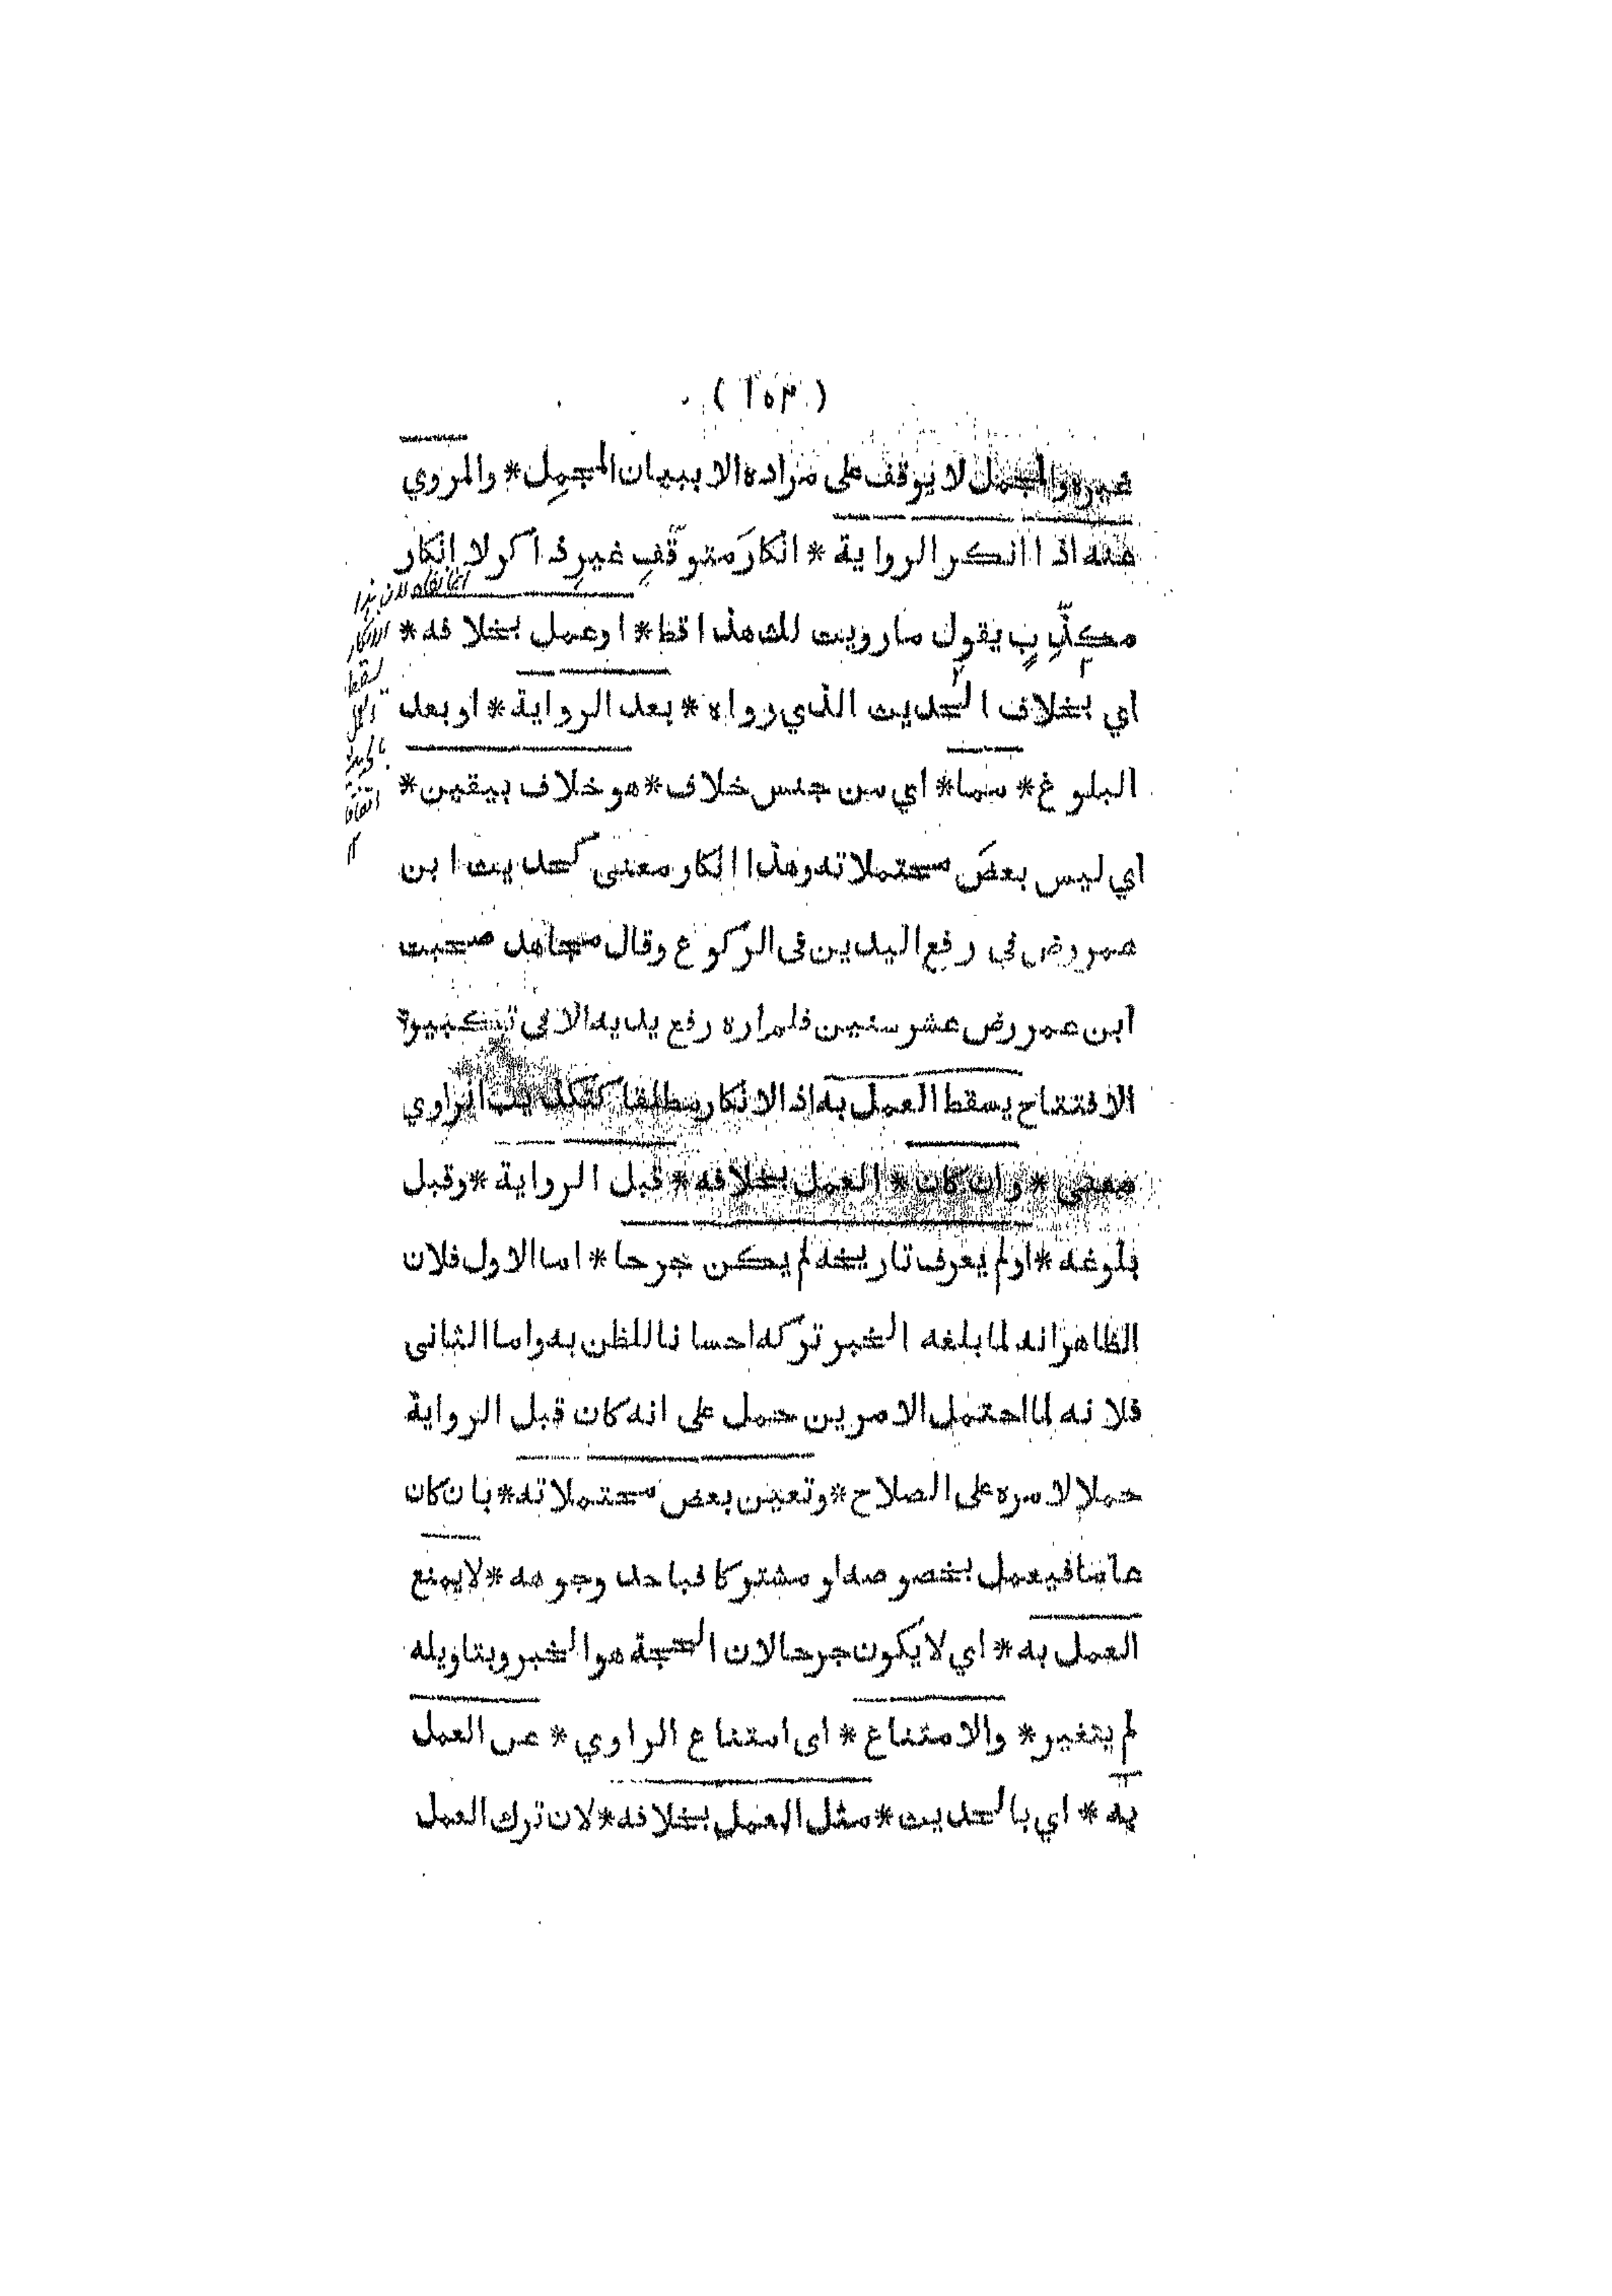 ( ١٥٣ )
غيره والمجمل لا يوقف على مراده الا ببيان المجمِل * والمروي
عنه اذا انكر الرواية * انكارَ متوقّفٍ غيرِ ذاكر لا انكار
مكذِّبٍ يقول ما رويت لك هذا قط * او عمل بخلافه *
اي بخلاف الحديث الذي رواه * بعد الرواية * او بعد
البلوغ * مما * اي من جنس خلاف * هو خلاف بيقين *
اي ليس بعضَ محتملاته وهذا انكار معنى كحديث ابن
عمر رض في رفع اليدين فى الركوع وقال مجاهد صحبت
ابن عمر رض عشر سنين فلم اره رفع يديه الا فى تكبيرة
الافتتاح يسقط العمل به اذ الانكار مطلقا كتكذيب الراوي
معنى * وان كان * العمل بخلافه * قبل الرواية * وقبل
بلوغه * او لم يعرف تاريخه لم يكن جرحا * اما الاول فلان
الظاهر انه لما بلغه الخبر تركه احسانا للظن به واما الثانى
فلانه لما احتمل الامرين حمل على انه كان قبل الرواية
حملا لامره على الصلاح * وتعين بعض محتملاته * بان كان
عاما فيعمل بخصوصه او مشتركا فباحد وجوهه * لا يمنع
العمل به * اي لا يكون جرحا لان الحجة هو الخبر وبتاويله
لم يتغير * والامتناع * اى امتناع الراوي * عن العمل
به * اي بالحديث * مثل العمل بخلافه * لان ترك العمل
الانكار
يسقط
العمل
بالحديث
اتفاقا